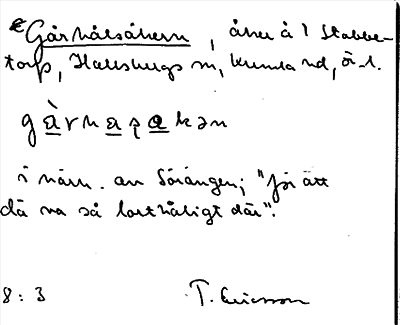 Gårhålsåkern, åker å 1 Stabbe-
torp, Hallsbergs sn, Kumla hd, Ö-l.
gàrhaꝛakən
i närh. av Sörängen; "för ått
dä va så lorthåligt där".
8:3 T. Ericsson